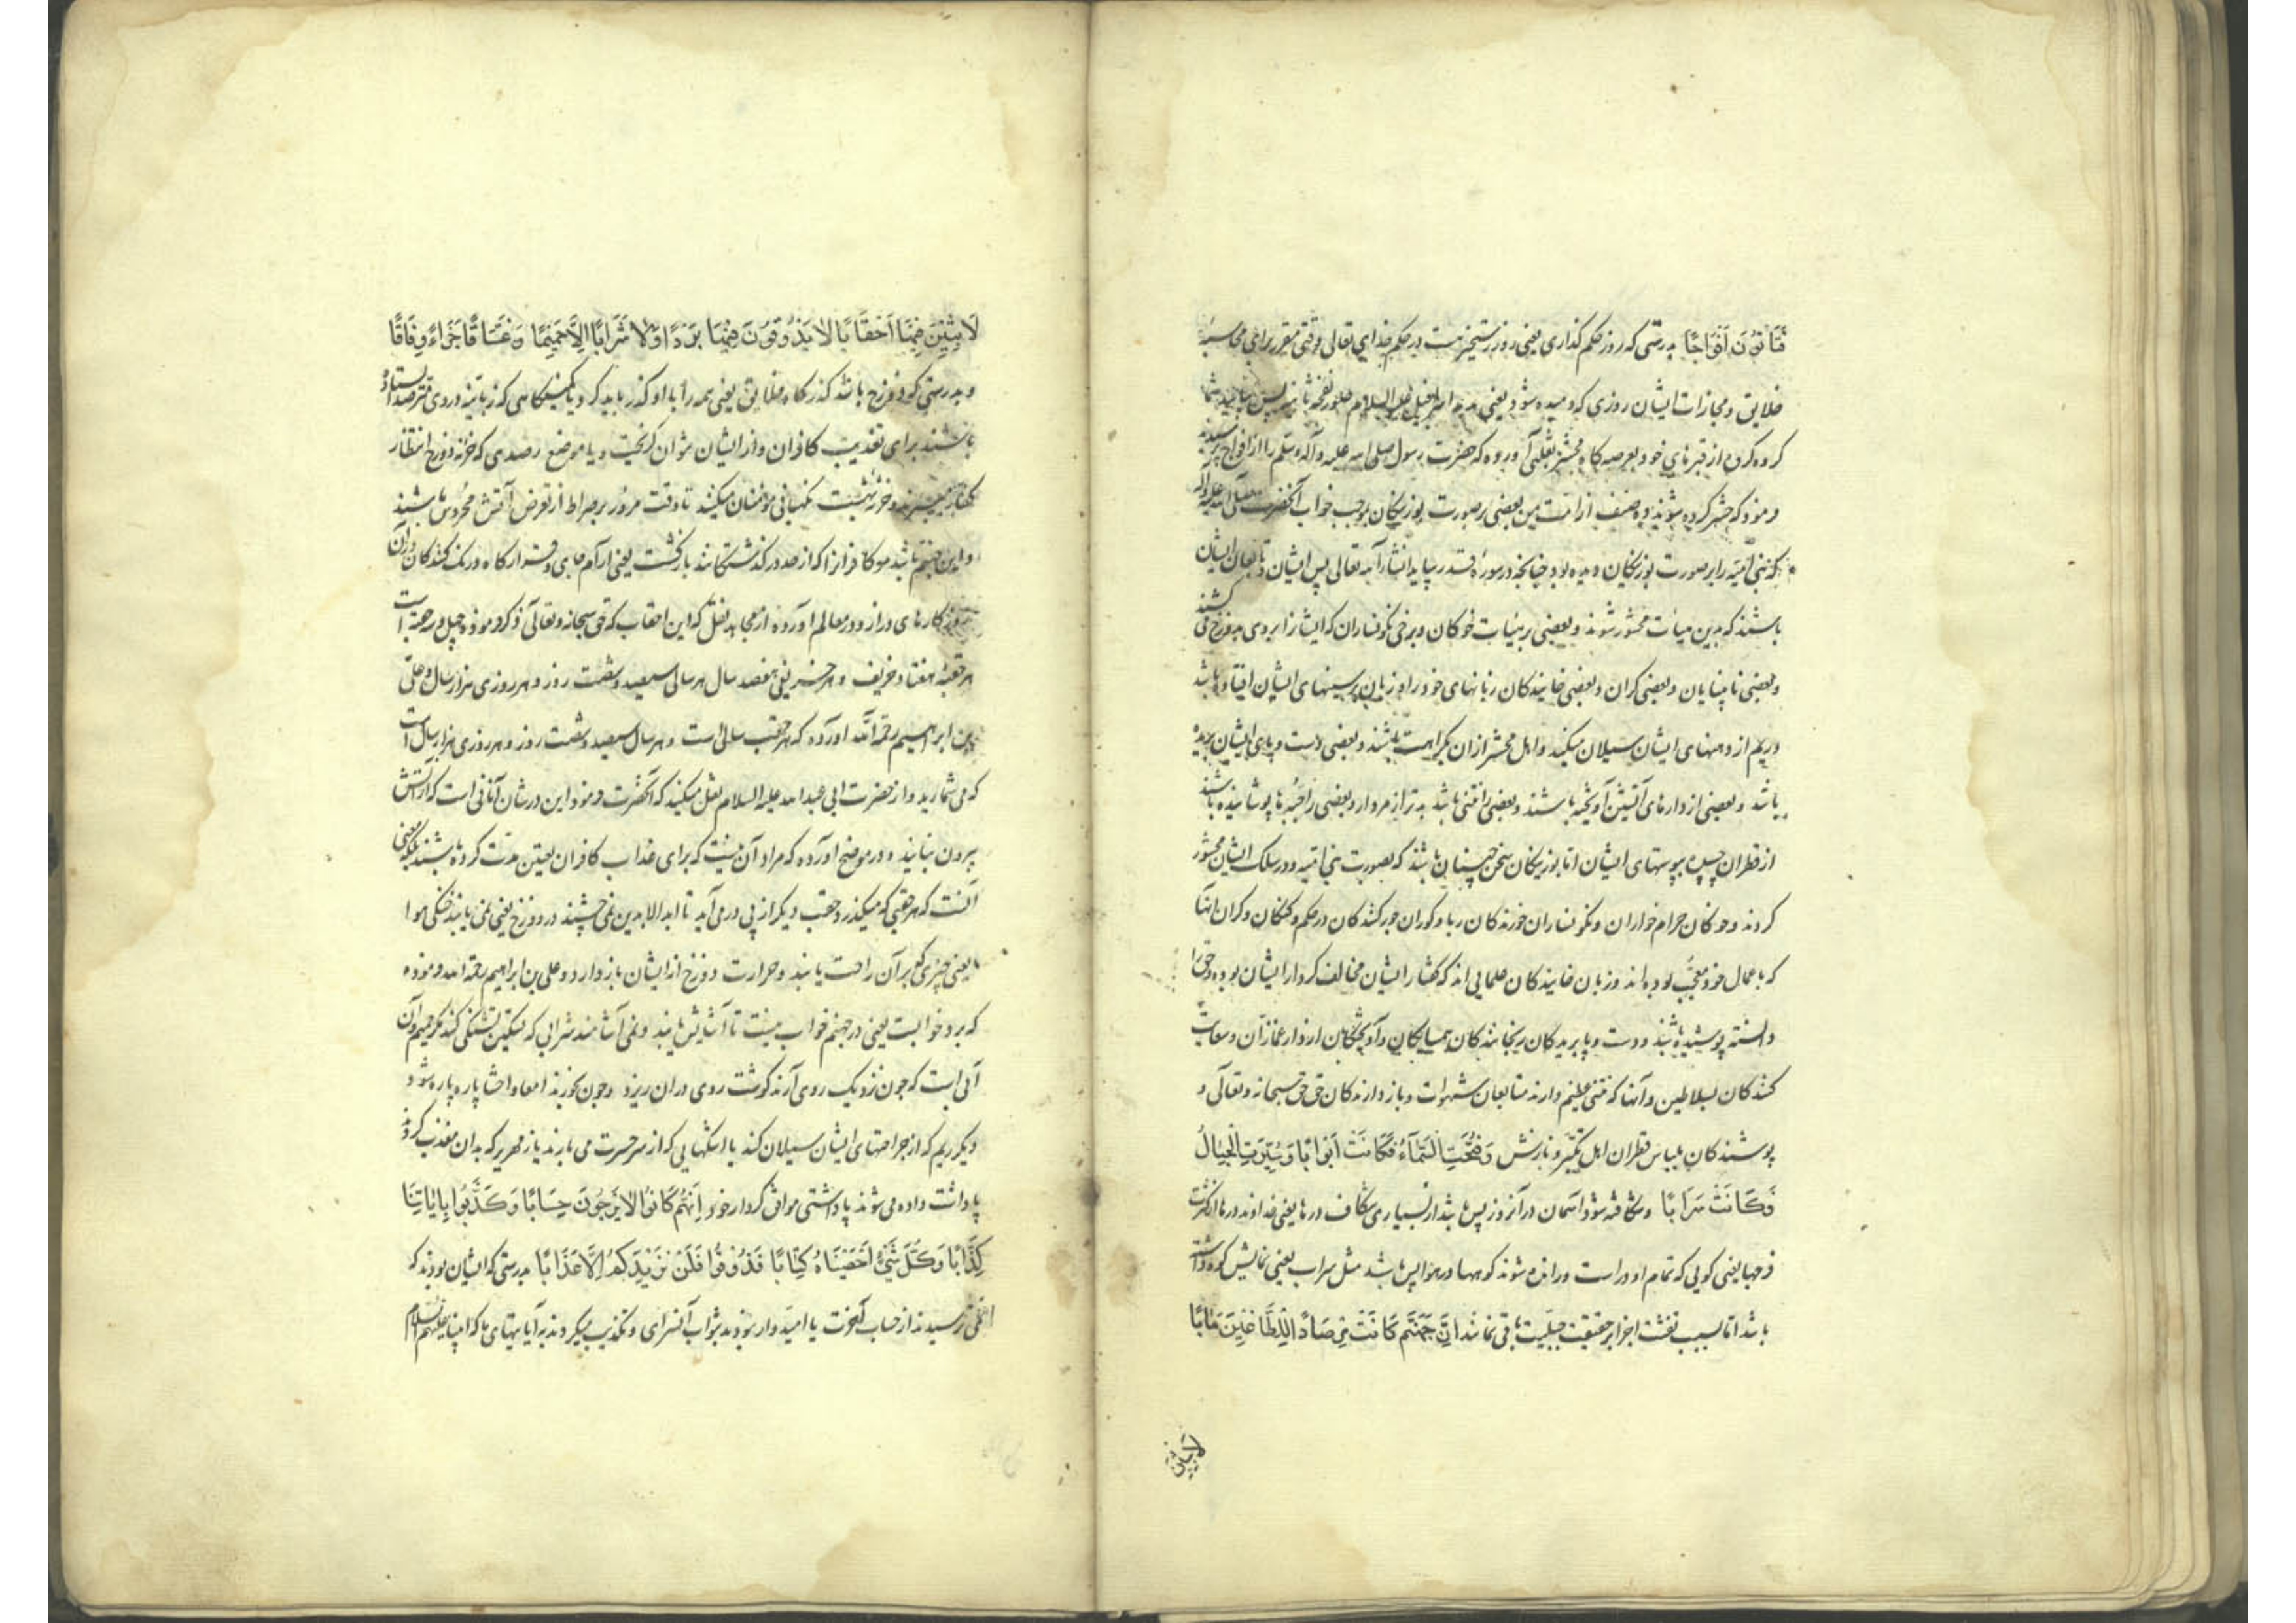 فَتَأْتُونَ أَفْوَاجًا بدرستی که روز حکم گذاری یعنی روز رستخیز هست در حکم خدای تعالی وقتی مقرر برای محاسبهٔ
خلایق و مجازات ایشان روزی که دمیده شود یعنی بدمد اسرافیل علیه السلام صور نفخه ثانیه پس بیایید شما
کروه کروه از قبرهای خود بعرصه کاه محشر ثعلبی آورده که حضرت رسول صلی الله علیه وآله وسلم را از افواج پرسیدند
فرمود که حشر کرده شوند ده صنف از امت من بعضی بر صورت بوزینکان بموجب خواب آنحضرت صلی الله علیه وآله
که بنی امیه را بر صورت بوزینکان دیده بود چنانچه در سورهٔ قدر بیاید انشاء الله تعالی پس ایشان و تابعان ایشان
باشند که بدین هیات محشور شوند و بعضی بر هیئات خوکان و برخی نکونساران که ایشانرا بروی بدوزخ می کشند
و بعضی نابینایان و بعضی کران و بعضی خایندکان زبانهای خود را و زبان بر سینهای ایشان افتاده باشد
و ریم از دهنهای ایشان سیلان میکند و اهل محشر ازان بکراهت باشند و بعضی دست و پای ایشان بریده
باشد و بعضی از دارهای آتشین آویخته باشند و بعضی را نتنی باشد بدتر از مردار و بعضی را جبه‌ها پوشانیده باشند
از قطران چسپیده بپوستهای ایشان اما بوزینکان سخن چینان باشند که بصورت بنی امیه و در سلک ایشان محشور
کردند و خوکان حرام خواران و نکونساران خورندکان ربا و کوران جور کنندکان در حکم و کنکان و کران آنها
که باعمال خود معجب بوده اند و زبان خایندکان علمایی اند که کفتار ایشان مخالف کردار ایشان بوده و حق را
دانسته پوشیده باشند و دست و پا بریدکان رنجانندکان همسایکان و آویختکان از دار غمازان و سعایت
کنندکان بسلاطین و آنها که نتنی عظیم دارند متابعان شهوات و باز دارندکان حق حق سبحانه و تعالی و
پوشندکان بلباس قطران اهل تکبر و نازش وَفُتِحَتِ السَّمَاءُ فَكَانَتْ أَبْوَابًا وَسُيِّرَتِ الْجِبَالُ
فَكَانَتْ سَرَابًا و شکافته شود آسمان در آنروز پس باشد از بسیاری شکاف درها یعنی خداوند درها از کثرت
فرجها یعنی کویی که تمام او در است و رانده شوند کوهها در هوا پس باشد مثل سراب یعنی نمایش کوه داشته
باشد اما بسبب تفتت اجزا بر حقیقت جبلیت باقی نمانند إِنَّ جَهَنَّمَ كَانَتْ مِرْصَادًا لِلطَّاغِينَ مَآبًا
لابثین
لَابِثِينَ فِيهَا أَحْقَابًا لَا يَذُوقُونَ فِيهَا بَرْدًا وَلَا شَرَابًا إِلَّا حَمِيمًا وَغَسَّاقًا جَزَاءً وِفَاقًا
و بدرستی که دوزخ باشد کذرکاه خلایق یعنی همه را با او کذر باید کرد یا کمینکاهی که زبانیه در وی مترصد ایستاده
باشند برای تعذیب کافران و از ایشان نتوان کریخت و یا موضع رصدی که خزنه دوزخ انتظار
کفار میبرند و خزنه بهشت نکهبانی مؤمنان میکنند تا وقت مرور بر صراط از تعرض آتش محروس باشند
و این جهنم باشد مر کافرانرا که از حد در کذشتکانند بازکشت یعنی آرام جای و قرارکاه درنک کنندکان در آن
روزکارهای دراز و در معالم آورده از مجاهد نقل که این احقاب که حق سبحانه و تعالی ذکر فرموده چهل و سه حقبه است
هر حقبهٔ هفتاد خریف و هر خریفی هفصد سال هر سالی سیصد و شصت روز و هر روزی هزار سال و علی
بن ابراهیم رحمه الله آورده که هر حقب سالی است و هر سال سیصد و شصت روز و هر روزی هزار سال است
که می شمارید و از حضرت ابی عبدالله علیه السلام نقل میکنند که آنحضرت فرمود این در شأن آنانی است که از آتش
بیرون نیایند و در موضح آورده که مراد آن نیست که برای عذاب کافران تعیین مدت کرده باشند بلکه معنی
آنست که هر حقبی که میکذرد حقب دیکر از پی در می آید تا ابد الابدین نمی چشند در دوزخ یعنی نمی یابند خنکی هوا
یا یعنی چیزی که بر آن راحت یابند و حرارت دوزخ از ایشان باز دارد و علی بن ابراهیم رحمة الله فرموده
که برد خوابست یعنی در جهنم خواب نیست تا آسایش یابند و نمی آشامند شرابی که تسکین تشنکی کند مکر حمیم و آن
آبی است که چون نزدیک روی آرند کوشت روی در ان ریزد و چون بخورند امعا و احشا پاره پاره شود و
دیکر ریم که از جراحتهای ایشان سیلان کند یا اشکهایی که از سر حسرت می بارند یا زمهریر که بدان معذب کردند
پاداشت داده می شوند پاداشتی موافق کردار خود إِنَّهُمْ كَانُوا لَا يَرْجُونَ حِسَابًا وَكَذَّبُوا بِآيَاتِنَا
كِذَّابًا وَكُلَّ شَيْءٍ أَحْصَيْنَاهُ كِتَابًا فَذُوقُوا فَلَنْ نَزِيدَكُمْ إِلَّا عَذَابًا بدرستی که ایشان بودند که
نمی ترسیدند از حساب آخرت یا امیدوار نبودند بثواب آنسرای و تکذیب میکردند بآیتهای ما که انبیا علیهم السلام